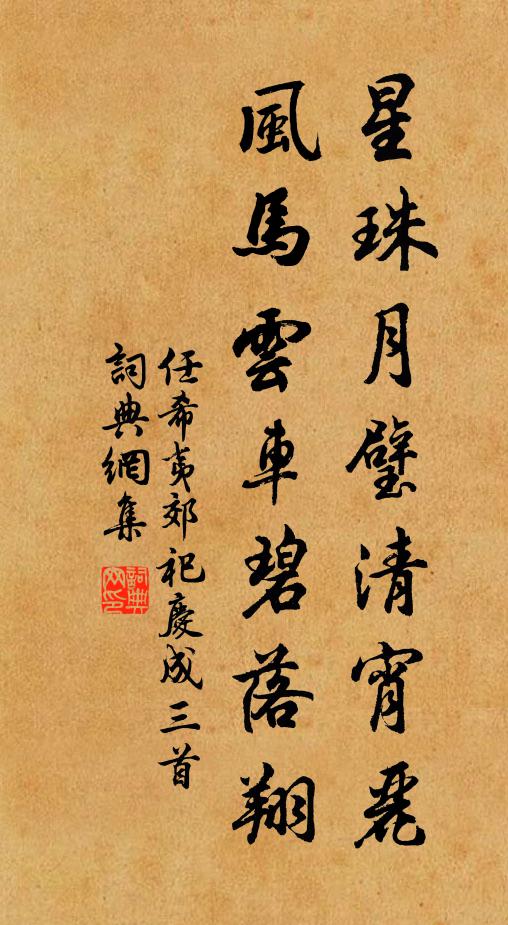 星珠月璧清宵麗
風馬雲車碧落翔
任希夷郊祀慶成三首
詞典網集
詞典网印